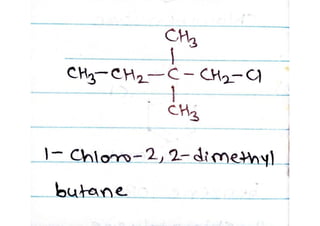 CH3
|
CH3-CH2-C-CH2-Cl
|
CH3
1- Chloro-2,2-dimethyl
butane